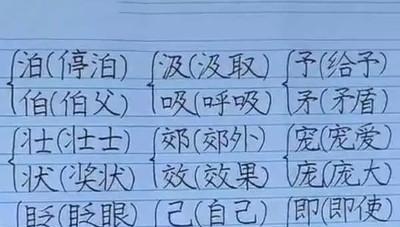 泊(停泊) 汲(汲取) 予(给予)
伯(伯父) 吸(呼吸) 矛(矛盾)
壮(壮士) 郊(郊外) 宠(宠爱)
状(奖状) 效(效果) 庞(庞大)
眨(眨眼) 己(自己) 即(即使)